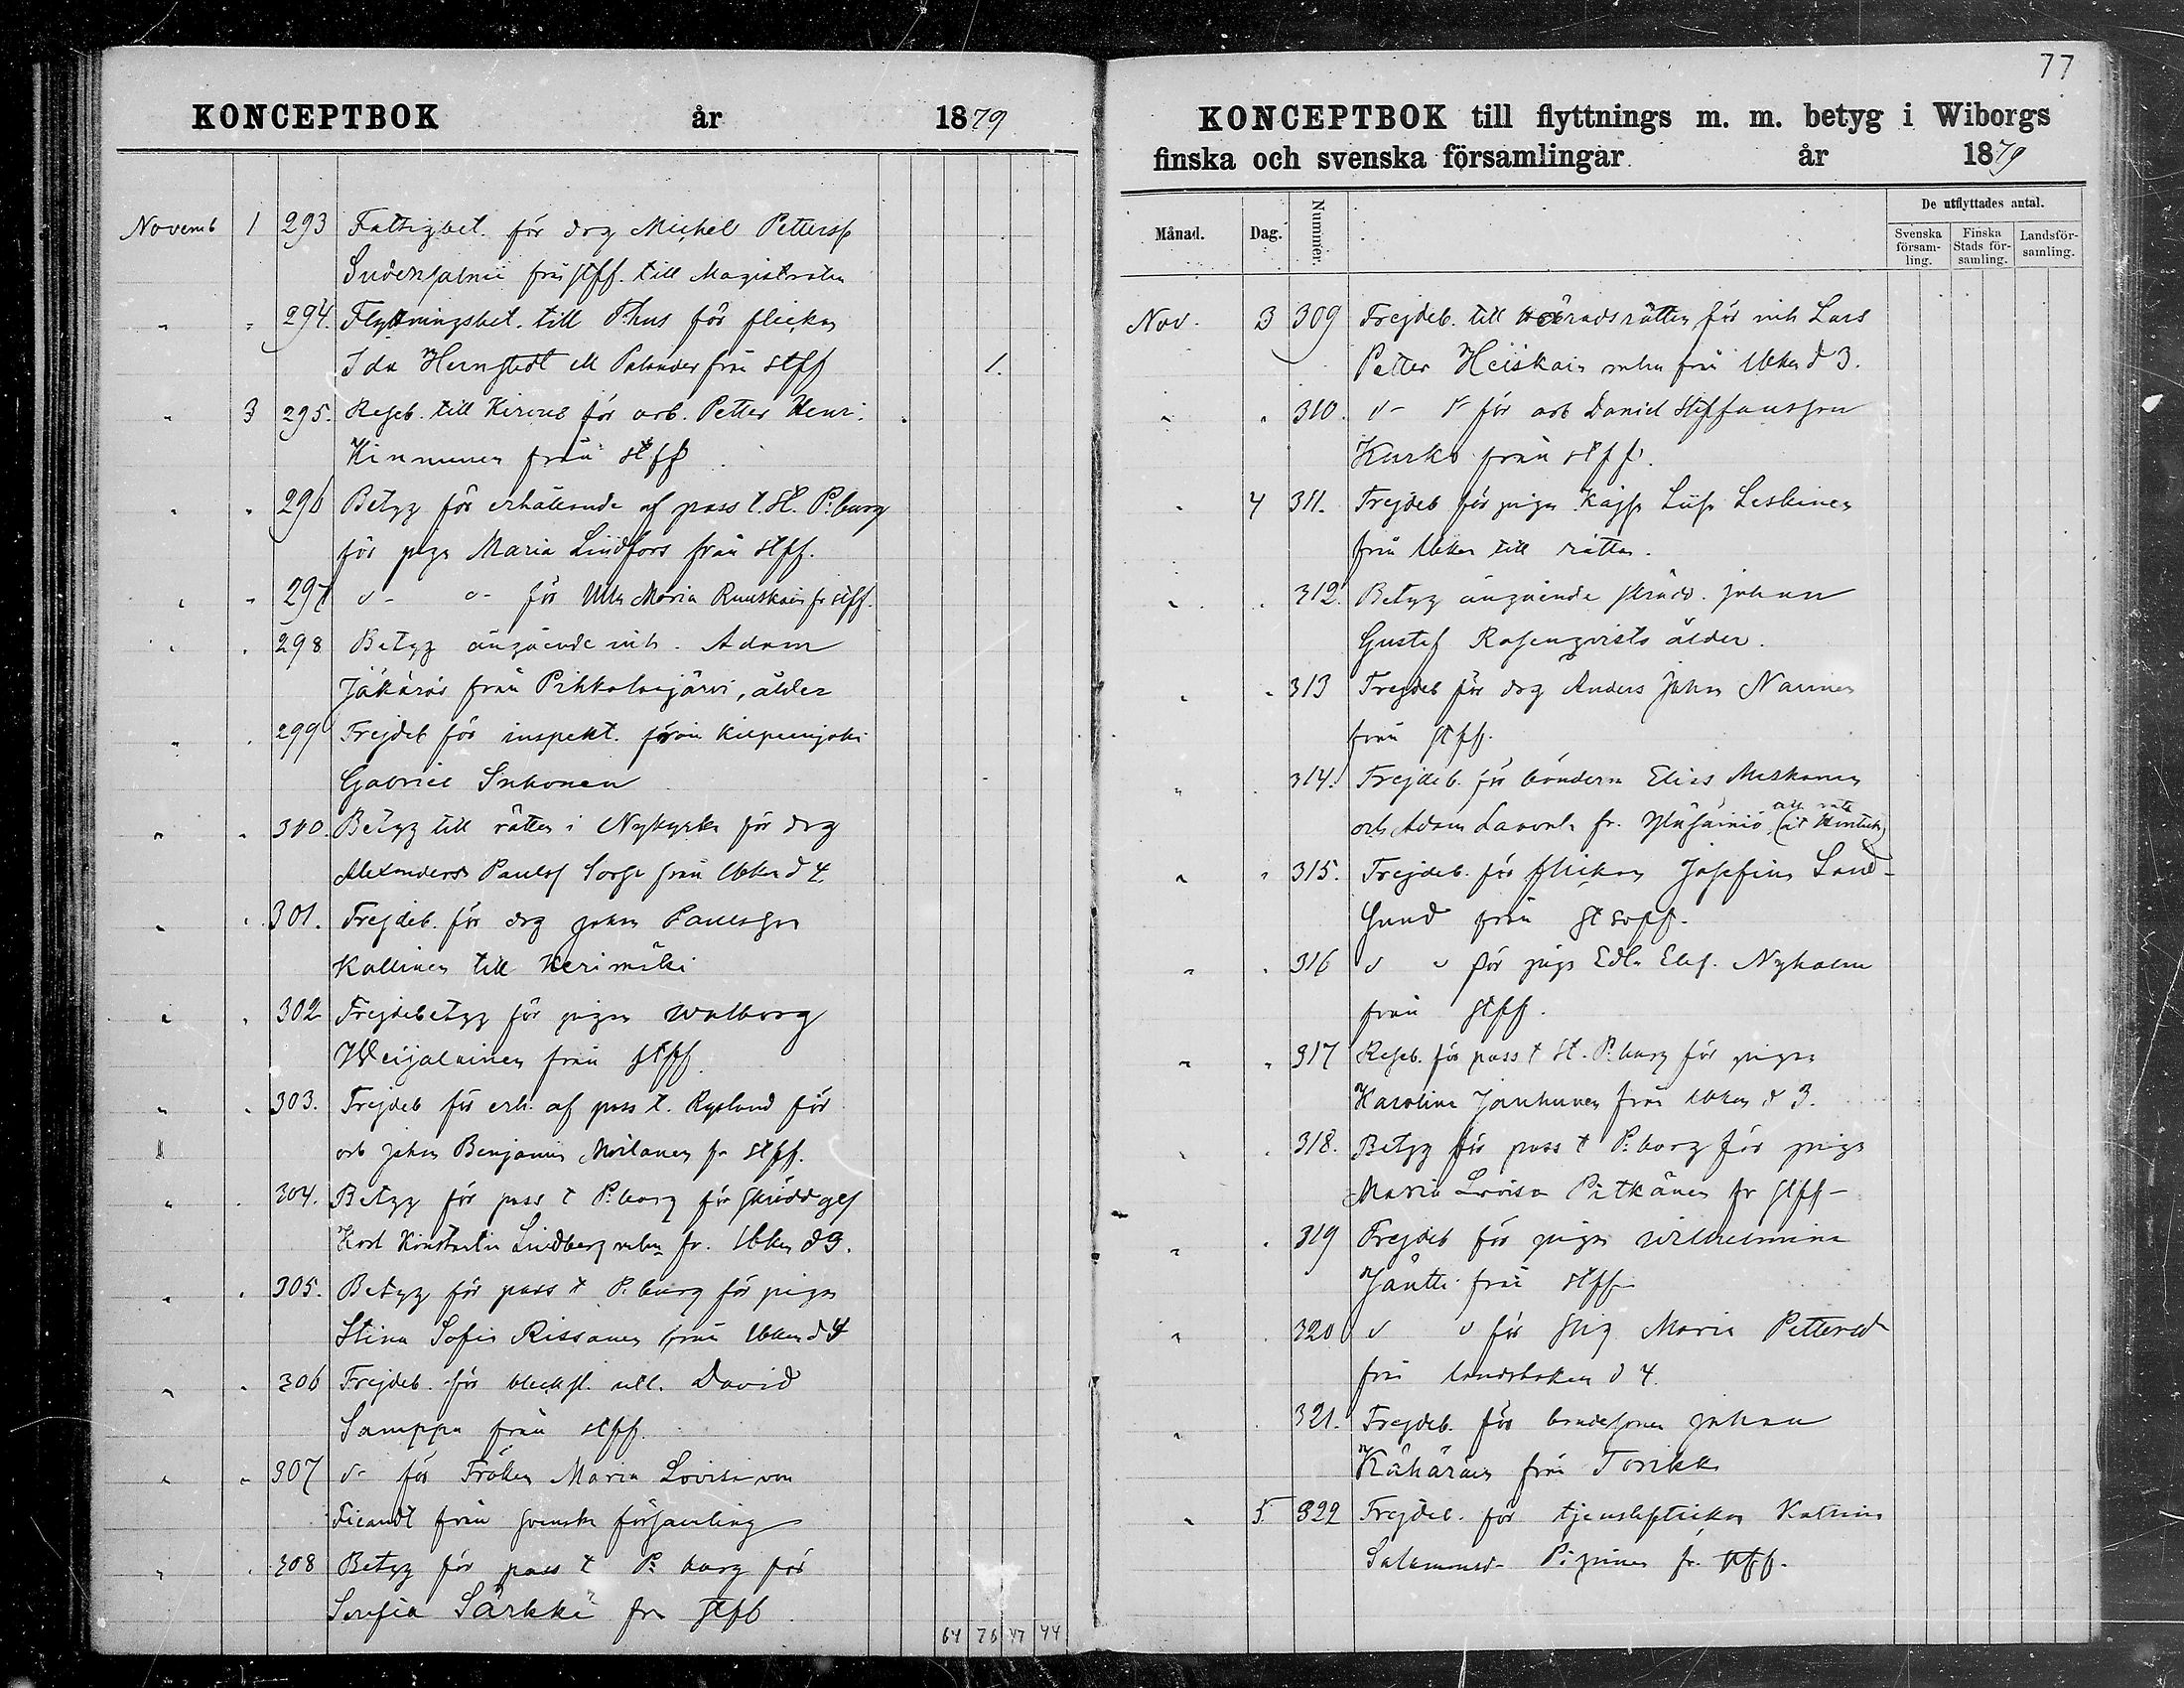 KONCEPTBOK år 1879
Novemb 1 293 Fattigbet. för drg Michel Petterss
från stff. till Magistraten
" " 294. Flyttningsbet. till Åhus för flickan
Ida Hernstedt ell Palander från stff 1.
" 3 295. Reseb. till Kivinebb för arb. Petter Henr.
Kinnunen från stff
" " 296 Betyg för erhållande af pass t. St. P:burg
för pigan Maria Lindfors från stff.
" " 297 d- o- för Ulla Maria Ruuskain fr stff.
" " 298 Betyg angående inh. Adam
Jäkärös från Pihkalajärvi, ålder
" " 299 Frejdeb för inspekt. från Kilpeenjoki
Gabriel Inkonen
" " 300. Betyg till rätten i Nykyrka för drg
Alexanders Paulss Sorsa från lbken d 4.
" " 301. Frejdeb. för drg Johan Paulsson
Kallinen till Kerimäki
" " 302 Frejdebetyg för pigan Walborg
Weijalainen från stff
" " 303. Frejdeb för erh. af pass t. Ryssland för
arb Johan Benjamin Moilanen fr stff.
" " 304. Betyg för pass t P:burg för skrädd ges
Karl Konstantin Lindberg fr. lbken d 3.
" " 305. Betyg för pass t P:burg för pigan
Stina Sofia Rissanen från lbken d 4
" " 306 Frejdeb. för blecksl. David
Samppa från stff.
" " 307 d- för Fröken Maria Lovisa von
Fieandt från svenska församling
" " 308 Betyg för pass t P:burg för
Serafia Särkkä fr stff
64 76 47 44
77
KONCEPTBOK till flyttnings m. m. betyg i Wiborgs
finska och svenska församlingar år 1879
Månad. Dag. Nummer. De utflyttades antal.
Svenska försam-ling. Finska Stads för-samling. Landsför-samling.
Nov. 3 309 Frejdeb. till häradsrätten för inh Lars
Petter Heiskain från lbken d 3.
" " 310. d- o- för arb Daniel Steffansson
Kurko från stff.
" 4 311. Frejdeb för pigan Kajsa Lisa Leskinen
från lbken till rätten.
" " 312. Betyg angående skrädd. Johan
Gustaf Rosenqvists ålder.
" " 313 Frejdeb för drg Anders Johan Narinen
från stff.
" " 314. Frejdeb. för bönderna Elias Meskanen
och Adam Lavonh. fr. Yläsäiniö
" " 315. Frejdeb. för flickan Josefina Sand-
sund från st soff.
" " 316 d o för piga Edla Elis. Nyholm
från stff.
" " 317 Reseb. för pass t St. P:burg för pigan
Karolina Janhunen från lbken d 3.
" " 318. Betyg för pass t P:borg för piga
Maria Lovisa Pitkänen fr stff-
" " 319 Frejdeb för pigan Wilhelmina
Jäntti från stff
" " 320 d o för Maria Pettersd
från landsboken d 4.
" " 321. Frejdeb. för bondesonen Johan
Kähärinen från Torikka
" 5. 322 Frejdeb. för tjensteflickan Katrina
Salomonsd. fr. stff.